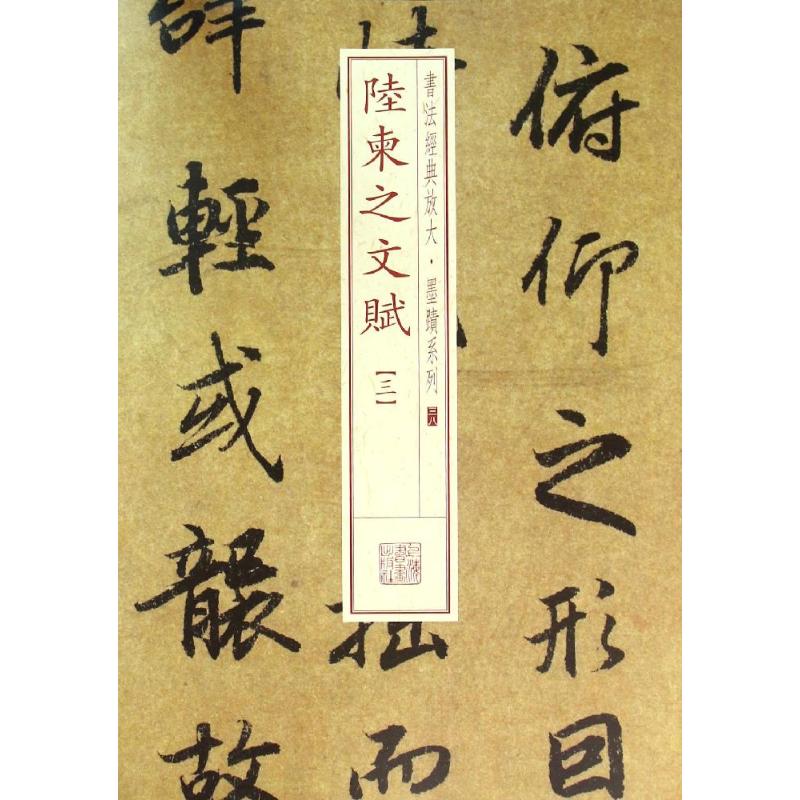 俯仰之形囙
書法經典放大・墨蹟系列 三八
陸柬之文賦
【三】
上海書畫出版社
拙而
輕或襲故